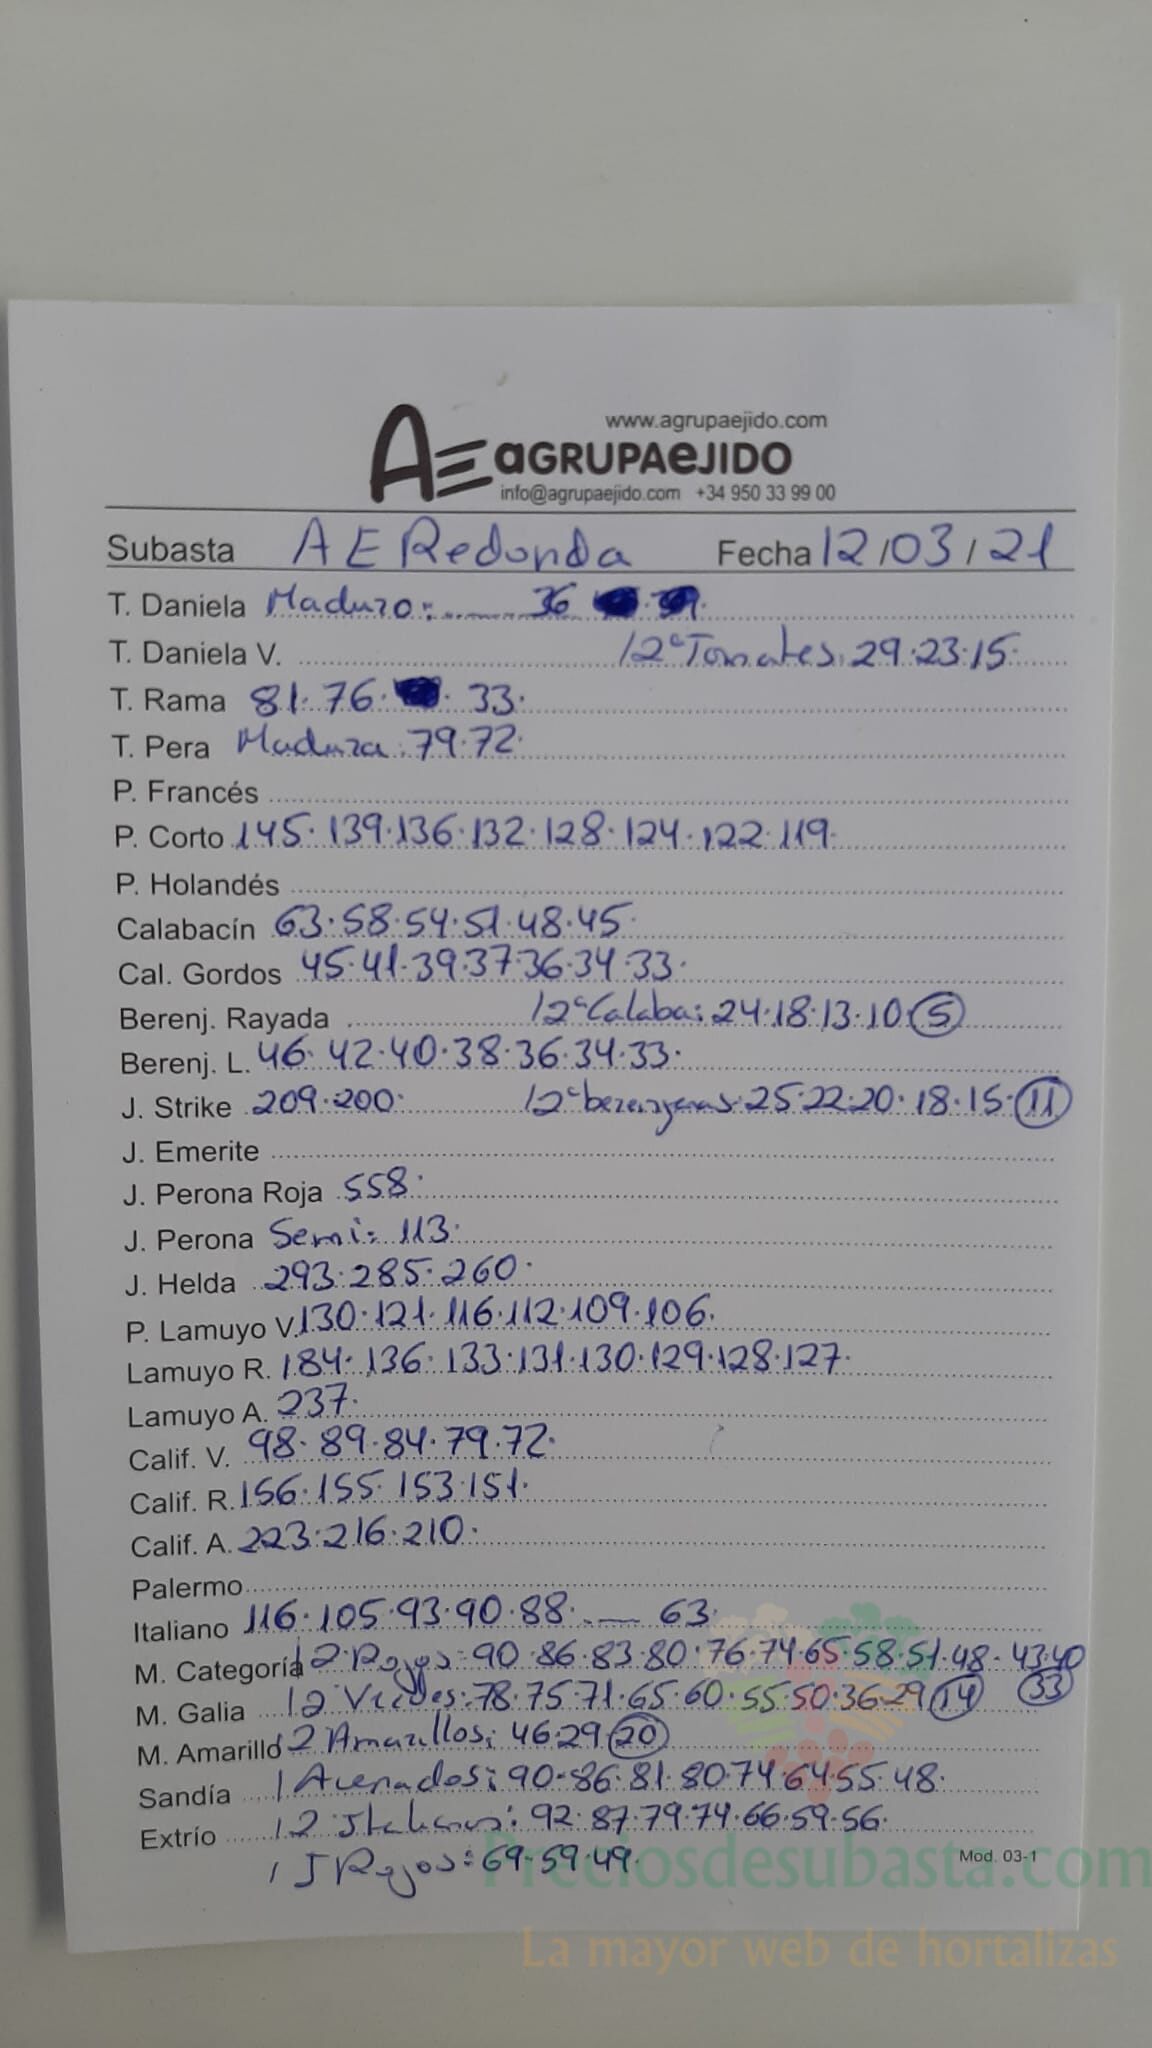 www.agrupaejido.com
AE aGRUPAeJIDO
info@agrupaejido.com +34 950 33 99 00
Subasta A E Redonda Fecha 12/03/21
T. Daniela Maduro: 36
T. Daniela V. /2ª Tomates: 29.23.15.
T. Rama 81.76. 33.
T. Pera Madura: 79.72.
P. Francés
P. Corto 145.139.136.132.128.124.122.119.
P. Holandés
Calabacín 63.58.54.51.48.45.
Cal. Gordos 45.41.39.37.36.34.33.
Berenj. Rayada /2ª Calaba: 24.18.13.10.5
Berenj. L. 46.42.40.38.36.34.33.
J. Strike 209.200. /2ª berenjenas: 25.22.20.18.15.11
J. Emerite
J. Perona Roja 558.
J. Perona Semi: 113.
J. Helda 293.285.260.
P. Lamuyo V. 130.121.116.112.109.106.
Lamuyo R. 184.136.133.131.130.129.128.127.
Lamuyo A. 237.
Calif. V. 98.89.84.79.72.
Calif. R. 156.155.153.151.
Calif. A. 223.216.210.
Palermo
Italiano 116.105.93.90.88. — 63.
M. Categoría /2 Rojos: 90.86.83.80.76.74.65.58.51.48.43.40
M. Galia /2 Verdes: 78.75.71.65.60.55.50.36.29 14 33
M. Amarillo /2 Amarillos: 46.29.20
Sandía / Asenados: 90.86.81.80.74.64.55.48.
Extrío /2 Italianos: 92.87.79.74.66.59.56.
/ J Rojos: 69.59.49.
Mod. 03-1
Preciosdesubasta.com
La mayor web de hortalizas